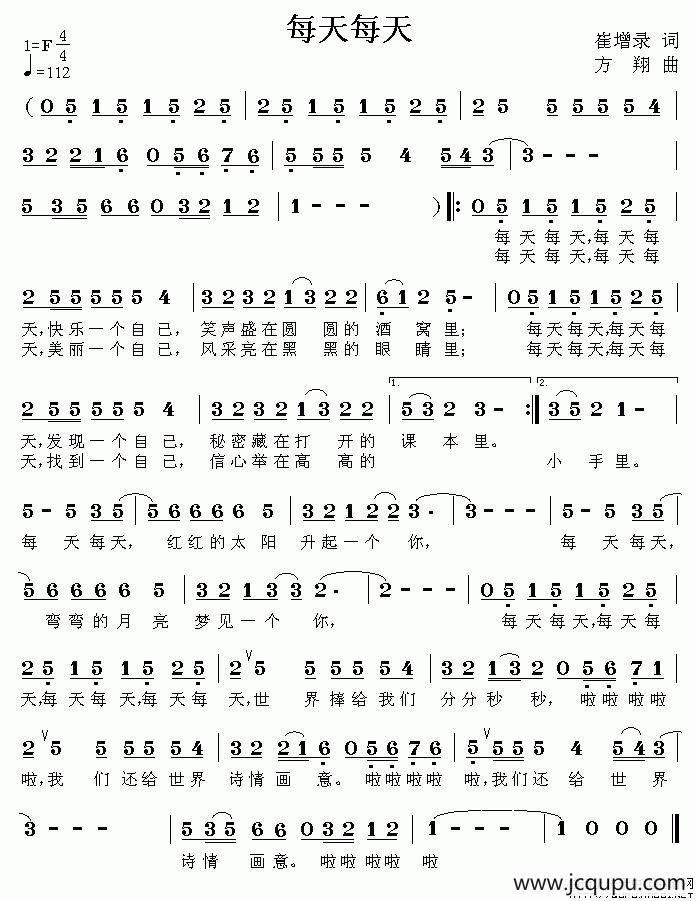 每天每天
1=F 4/4
♩=112
崔增录 词
方 翔 曲
(0 5 1 5 1 5 2 5 | 2 5 1 5 1 5 2 5 | 2 5 5 5 5 5 4 |
3 2 2 2 1 6 0 5 6 7 6 | 5 5 5 5 4 5 4 3 | 3 - - - |
5 3 5 6 6 0 3 2 1 2 | 1 - - - ) ‖: 0 5 1 5 1 5 2 5 |
每天每天,每天每
每天每天,每天每
2 5 5 5 5 5 5 4 | 3 2 3 2 1 3 2 2 | 6 1 2 5 - | 0 5 1 5 1 5 2 5 |
天,快乐一个自己, 笑声盛在圆 圆的 酒 窝里; 每天每天,每天每
天,美丽一个自己, 风采亮在黑 黑的 眼 睛里; 每天每天,每天每
2 5 5 5 5 5 5 4 | 3 2 3 2 1 3 2 2 | 1. 5 3 2 3 - :‖ 2. 3 5 2 1 - |
天,发现一个自己, 秘密藏在打 开的 课 本里。
天,找到一个自己, 信心举在高 高的 小 手里。
5 - 5 3 5 | 5 6 6 6 6 5 | 3 2 1 2 2 3 · | 3 - - - | 5 - 5 3 5 |
每 天每天, 红红的太 阳 升起一个 你, 每 天每天,
5 6 6 6 6 5 | 3 2 1 3 3 2 · | 2 - - - | 0 5 1 5 1 5 2 5 |
弯弯的月 亮 梦见一个 你, 每天每天,每天每
2 5 1 5 1 5 2 5 | 2 ∨ 5 5 5 5 5 4 | 3 2 1 3 2 0 5 6 7 1 |
天,每天每天,每天每 天,世 界捧给我们 分分秒 秒, 啦啦啦啦
2 ∨ 5 5 5 5 5 4 | 3 2 2 2 1 6 0 5 6 7 6 | 5 ∨ 5 5 5 4 5 4 3 |
啦,我 们还给世界 诗情画 意。 啦啦啦啦 啦,我们还 给 世 界
3 - - - | 5 3 5 6 6 0 3 2 1 2 | 1 - - - | 1 0 0 0 ‖
诗情 画意。 啦啦啦啦 啦
www.jcqupu.com